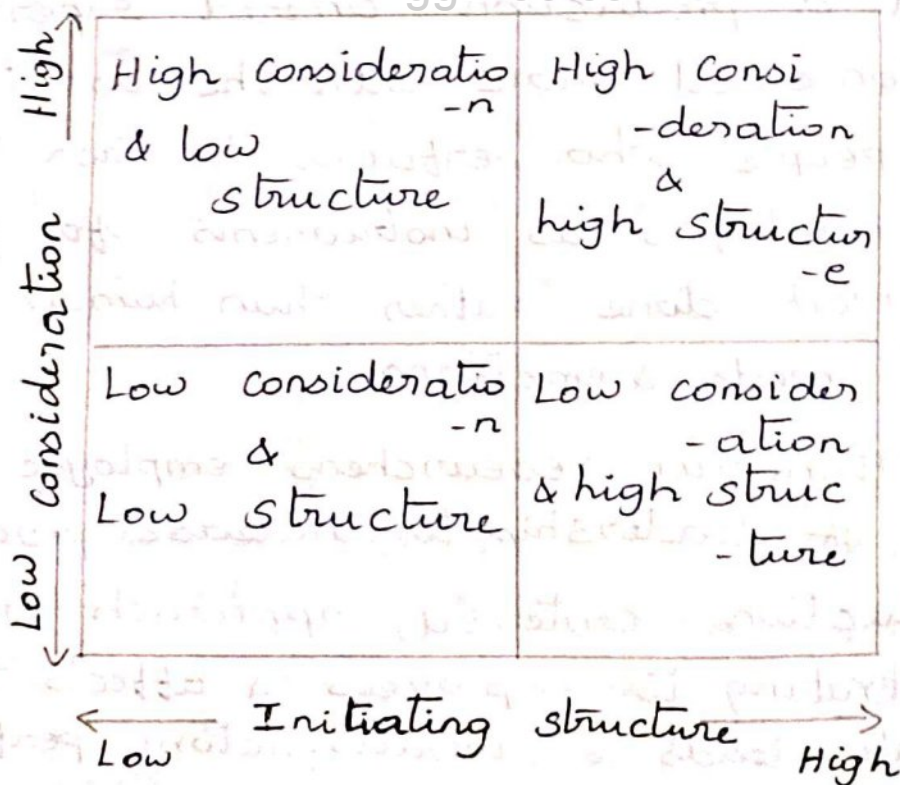 High
High consideratio
-n
& low
structure
High consi
-deration
&
high structur
-e
Consideration
Low consideratio
-n
&
Low structure
Low consider
-ation
& high struc
-ture
Low
Initiating structure
Low
High